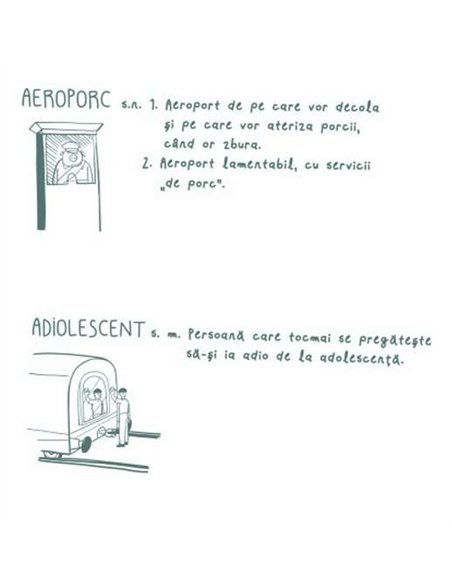 AEROPORC s.n. 1. Aeroport de pe care vor decola
și pe care vor ateriza porcii,
când or zbura.
2. Aeroport lamentabil, cu servicii
„de porc".
ADIOLESCENT s. m. Persoană care tocmai se pregătește
să-și ia adio de la adolescență.